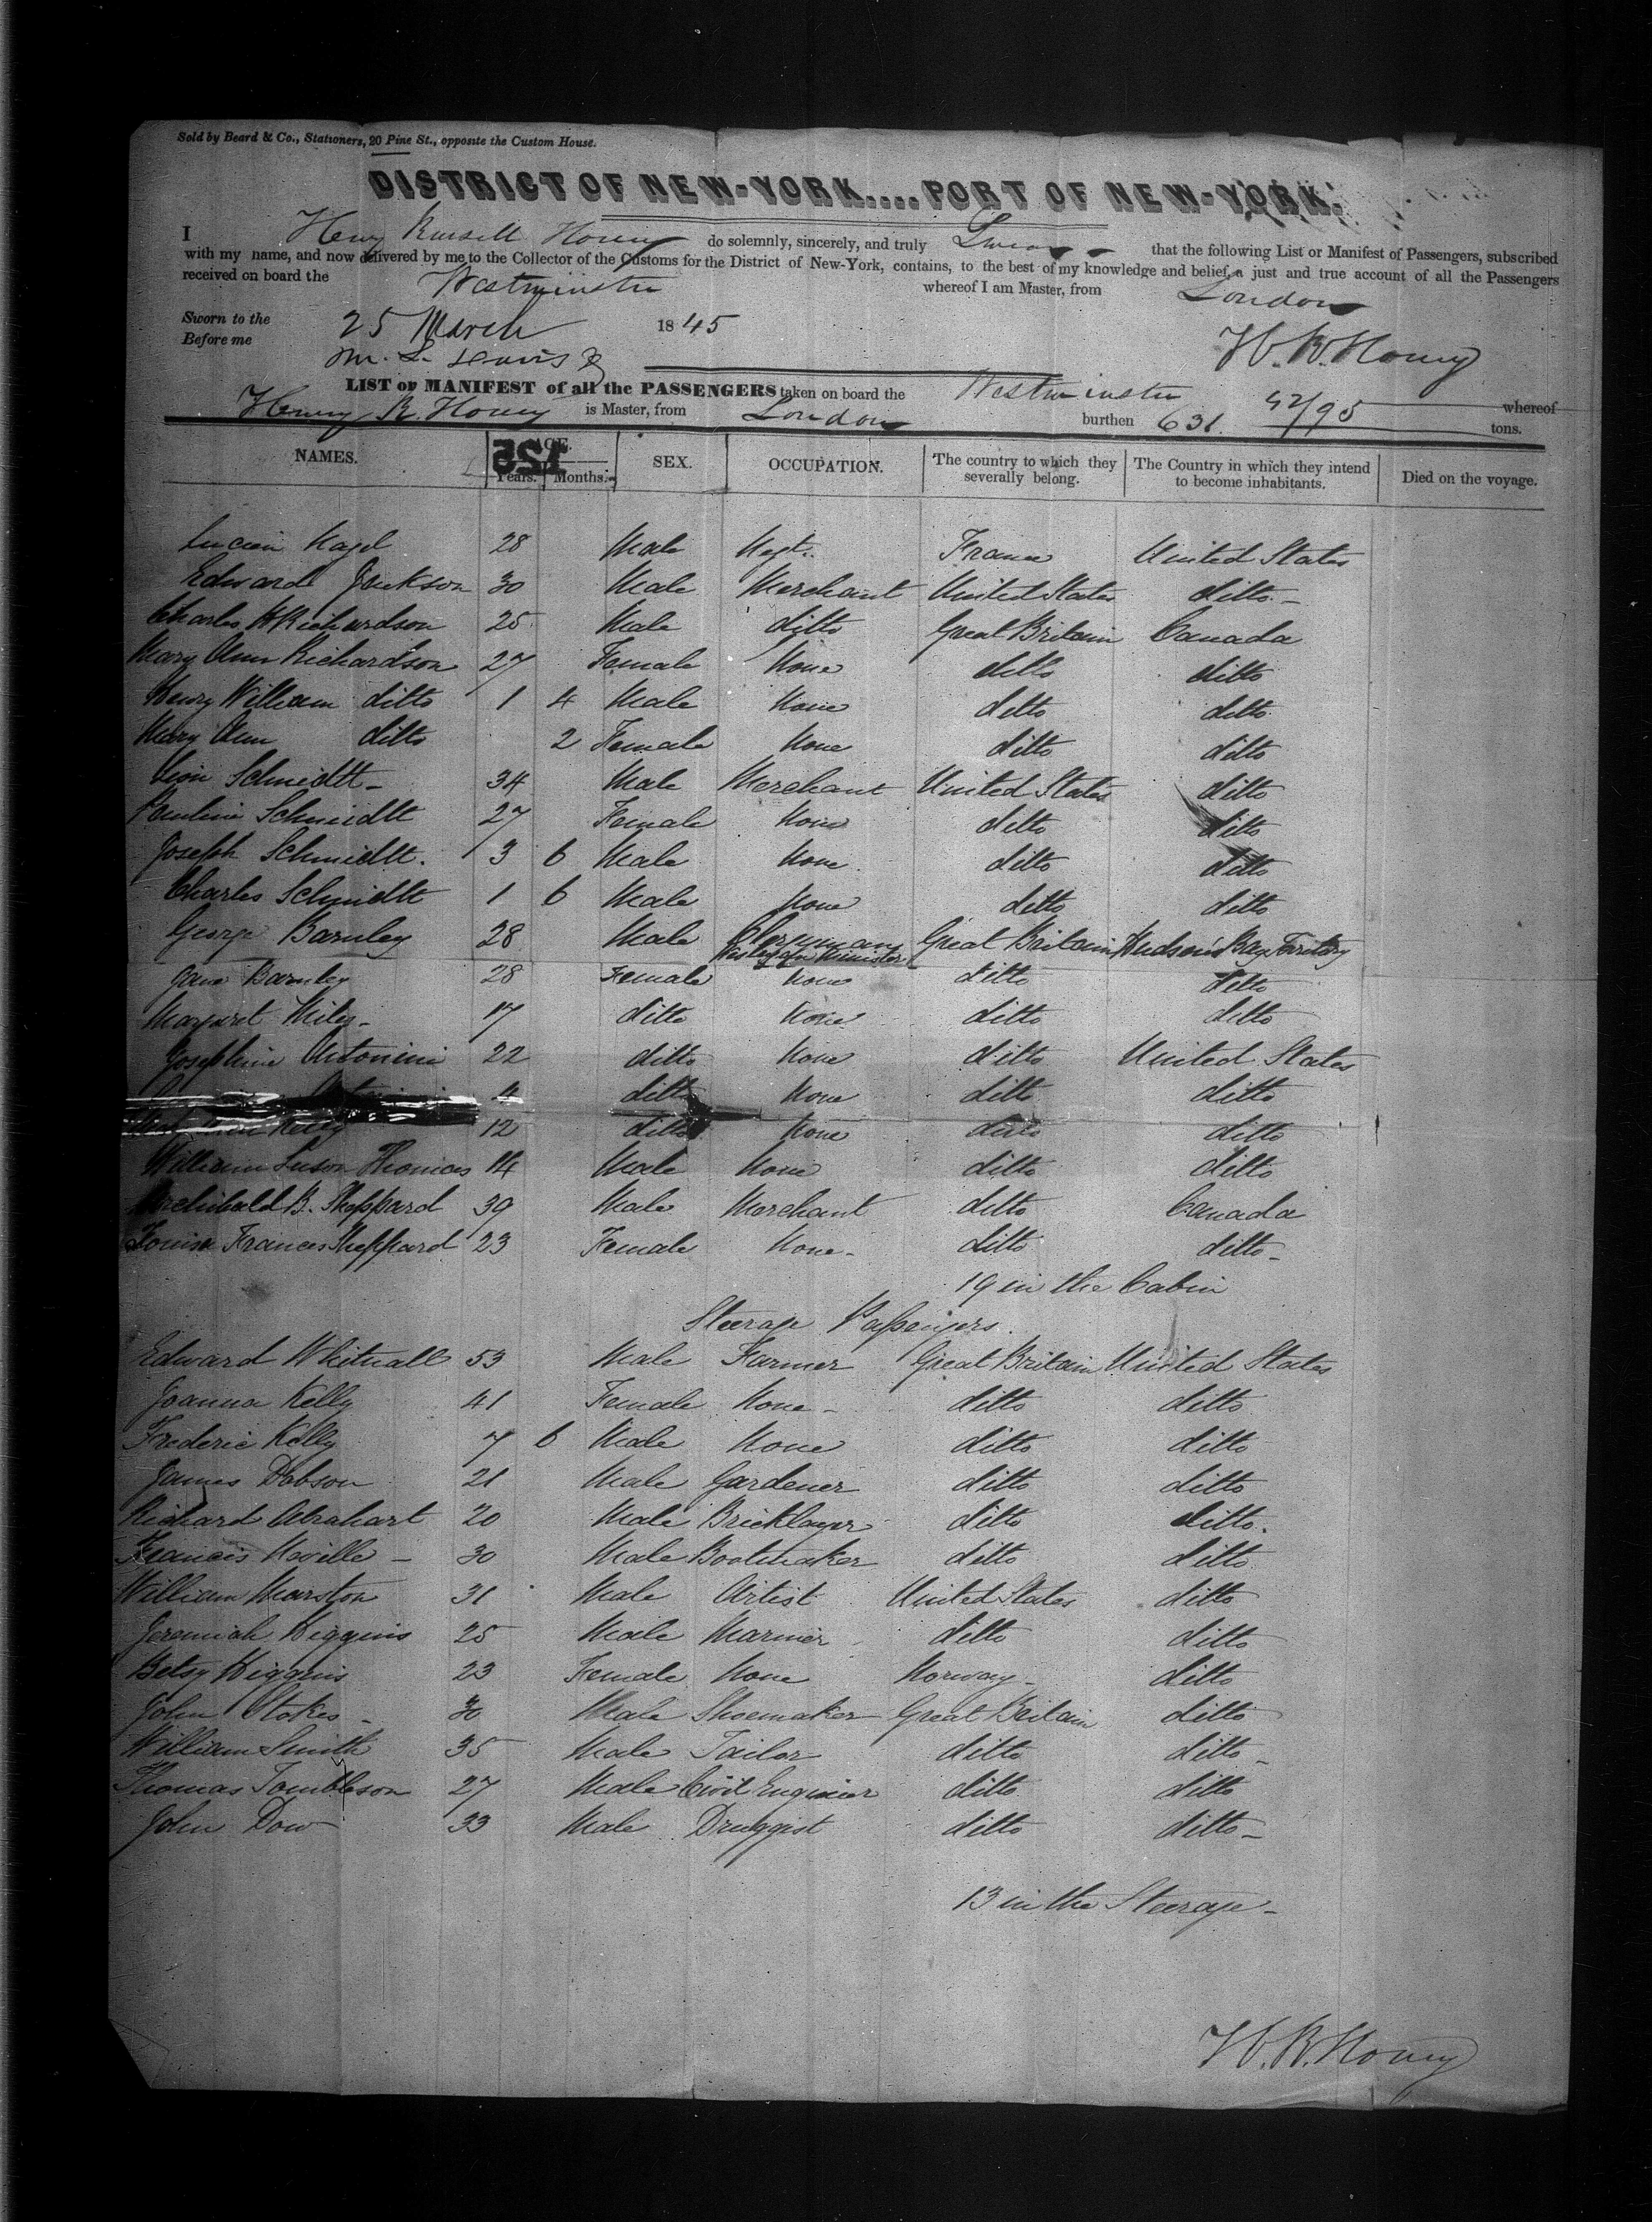 Sold by Beard & Co., Stationers, 20 Pine St., opposite the Custom House.
DISTRICT OF NEW-YORK....PORT OF NEW-YORK.
I Henry Russell Hovey do solemnly, sincerely, and truly Swear that the following List or Manifest of Passengers, subscribed
with my name, and now delivered by me to the Collector of the Customs for the District of New-York, contains, to the best of my knowledge and belief, a just and true account of all the Passengers
received on board the Westminster whereof I am Master, from London
Sworn to the 25 March 1845
Before me M. L. Davis H. R. Hovey
LIST OR MANIFEST of all the PASSENGERS taken on board the Westminster whereof
Henry R. Hovey is Master, from London burthen 631 42/95 tons.
NAMES. AGE. Years. Months. SEX. OCCUPATION. The country to which they severally belong. The Country in which they intend to become inhabitants. Died on the voyage.
125
Lucien 28 Male France United States
Edward Jackson 30 Male Merchant United States ditto
Charles Richardson 25 Male ditto Great Britain Canada
Mary Ann Richardson 27 Female None ditto ditto
Henry William ditto 1 4 Male None ditto ditto
Mary Ann ditto 2 Female None ditto ditto
Schmidtt 34 Male Merchant United States ditto
Pauline Schmidtt 27 Female None ditto ditto
Joseph Schmidtt. 3 6 Male None ditto ditto
Charles Schmidtt 1 6 Male None ditto ditto
George Barnley 28 Male Clergyman Great Britain Hudson's Bay Territory
Wesleyan Minister
Jane Barnley 28 Female None ditto ditto
Margaret Miles 17 ditto None ditto ditto
Josephine Antonini 22 ditto None ditto United States
4 ditto None ditto ditto
Kelly 12 ditto None ditto ditto
William Thomas 14 Male None ditto ditto
Archibald B. Sheppard 39 Male Merchant ditto Canada
Louisa Frances Sheppard 23 Female None ditto ditto
19 in the Cabin
Steerage Passengers.
Edward Whitnall 53 Male Farmer Great Britain United States
Joanna Kelly 41 Female None ditto ditto
Frederic Kelly 7 6 Male None ditto ditto
James Dobson 21 Male Gardener ditto ditto
Richard Abrahart 20 Male Bricklayer ditto ditto.
Francis Neville 30 Male Bootmaker ditto ditto
William Marston 31 Male Artist United States ditto
Jeremiah Higgins 25 Male Mariner ditto ditto
Betsy Higgins 23 Female None Norway ditto
John Stokes 30 Male Shoemaker Great Britain ditto
William Smith 35 Male Tailor ditto ditto
Thomas Tombleson 27 Male Civil Engineer ditto ditto
John Dow 33 Male Druggist ditto ditto
13 in the Steerage
H. R. Hovey